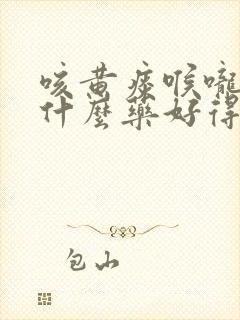 咳黄痰喉嚨
什麼藥好得
包山